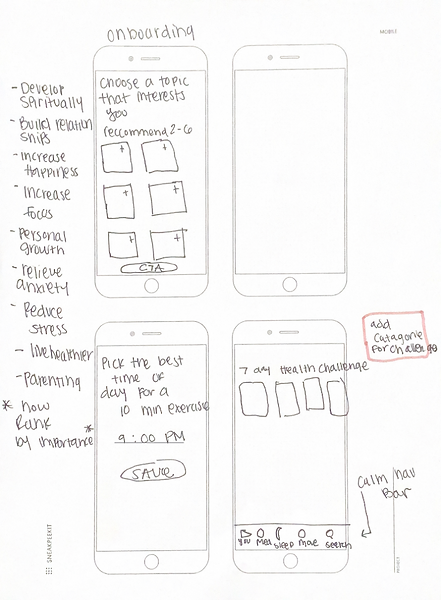 onboarding
MOBILE
- Develop
Spiritually
- Build relation
ships
- Increase
Happiness
- Increase
focus
- Personal
growth
- relieve
anxiety
- Reduce
stress
- live healthier
- Parenting
* now
Rank
by importance *
choose a topic
that interests
you
reccommend 2-6
+ +
+ +
+ +
CTA
Pick the best
time of
day for a
10 min exercise
9:00 PM
SAVE
7 day Health challenge
add
catagorie
for challenge
calm nav
Bar
you Med Sleep More Search
SNEAKPEEKIT
MOBILE